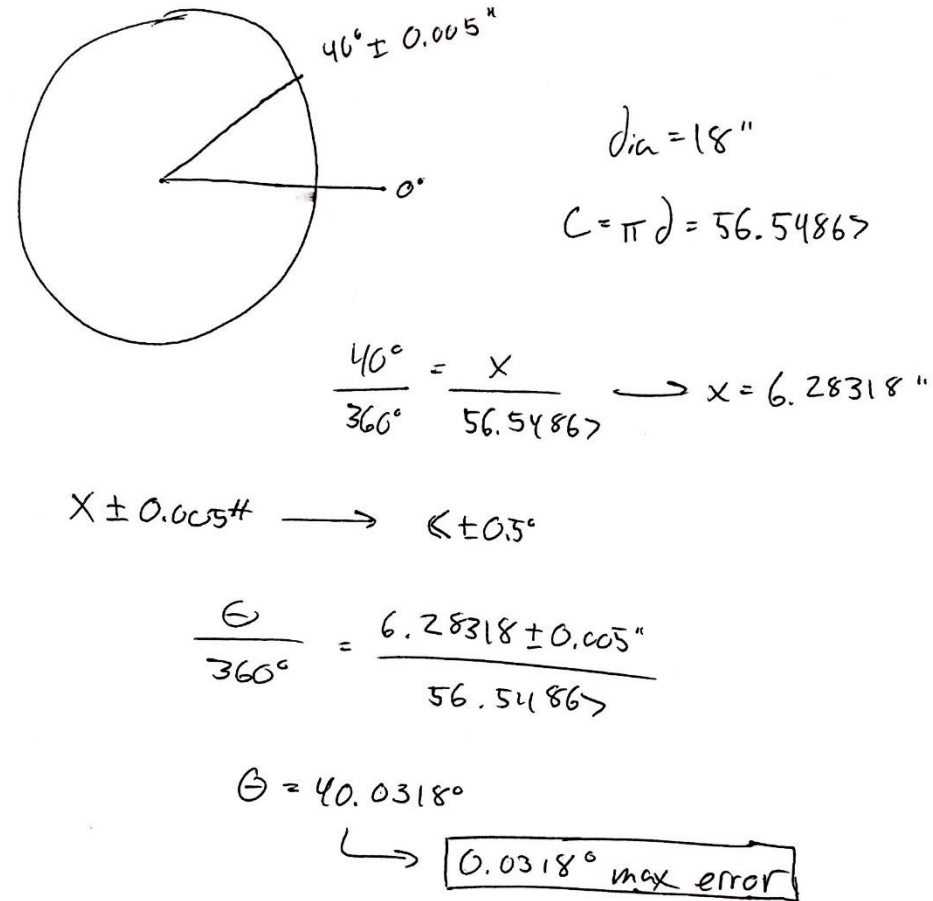 40° ± 0.005"
0°
dia = 18"
C = πd = 56.54867
40°/360° = x/56.54867 → x = 6.28318"
X ± 0.005" → < ± 0.5°
θ/360° = 6.28318 ± 0.005"/56.54867
θ = 40.0318°
↳ 0.0318° max error